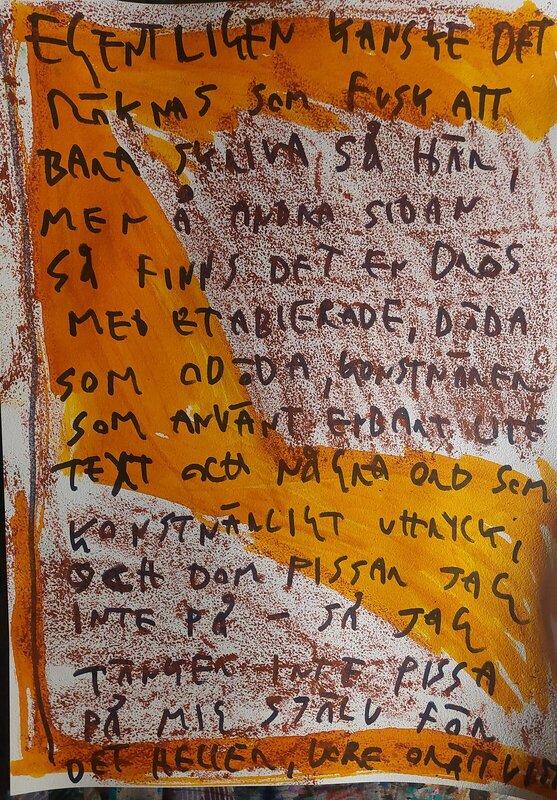 EGENTLIGEN KANSKE DET
RÄKNAS SOM FUSK ATT
BARA SKRIVA SÅ HÄR,
MEN Å ANDRA SIDAN
SÅ FINNS DET EN DRÖS
MED ETABLERADE, DÖDA
SOM ODÖDA, KONSTNÄRER
SOM ANVÄNT ENBART LITE
TEXT OCH NÅGRA ORD SOM
KONSTNÄRLIGT UTTRYCK,
OCH DOM PISSAR JAG
INTE PÅ - SÅ JAG
TÄNKER INTE PISSA
PÅ MIG SJÄLV FÖR
DET HELLER, VORE ORÄTTVIST